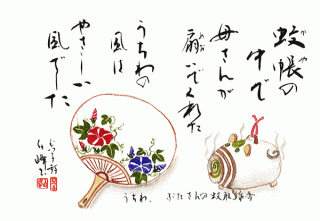 蚊帳の
中で
母さんが
扇いでくれた
うちわの
風は
やさしい
風でした
うちわ、ぶたさんの蚊取線香